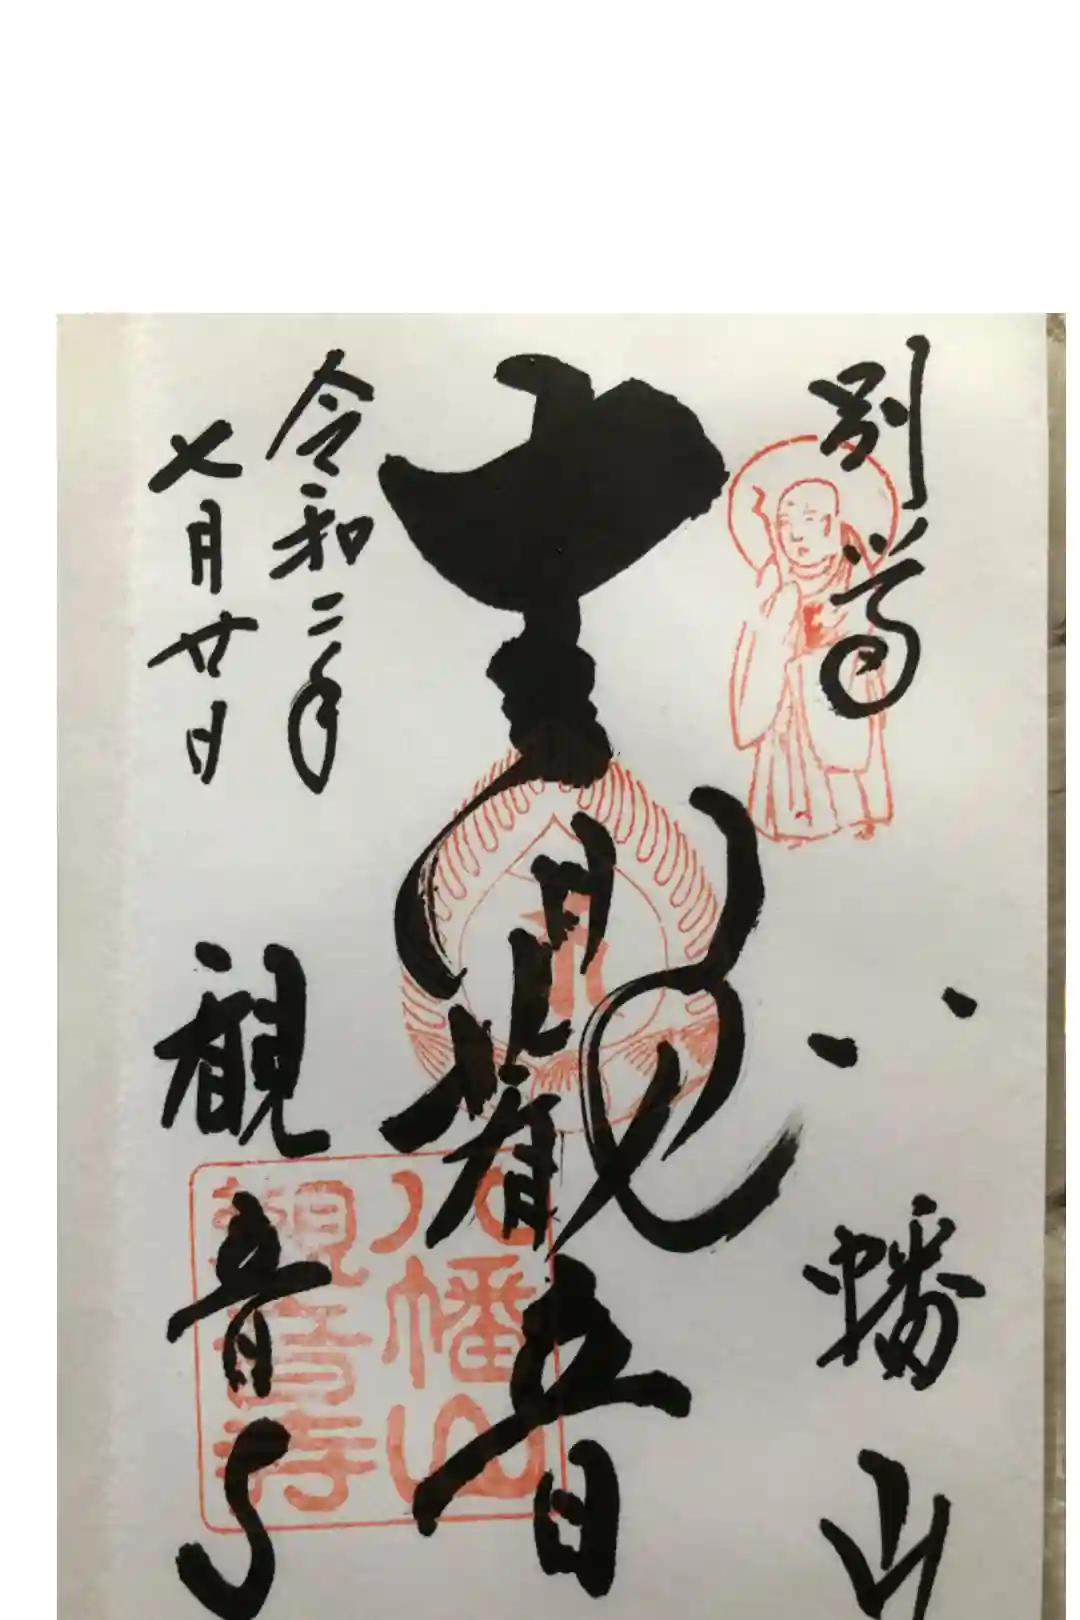 別尊 八幡山
觀音
令和二年
七月廿日
觀音寺
八幡山
觀音寺